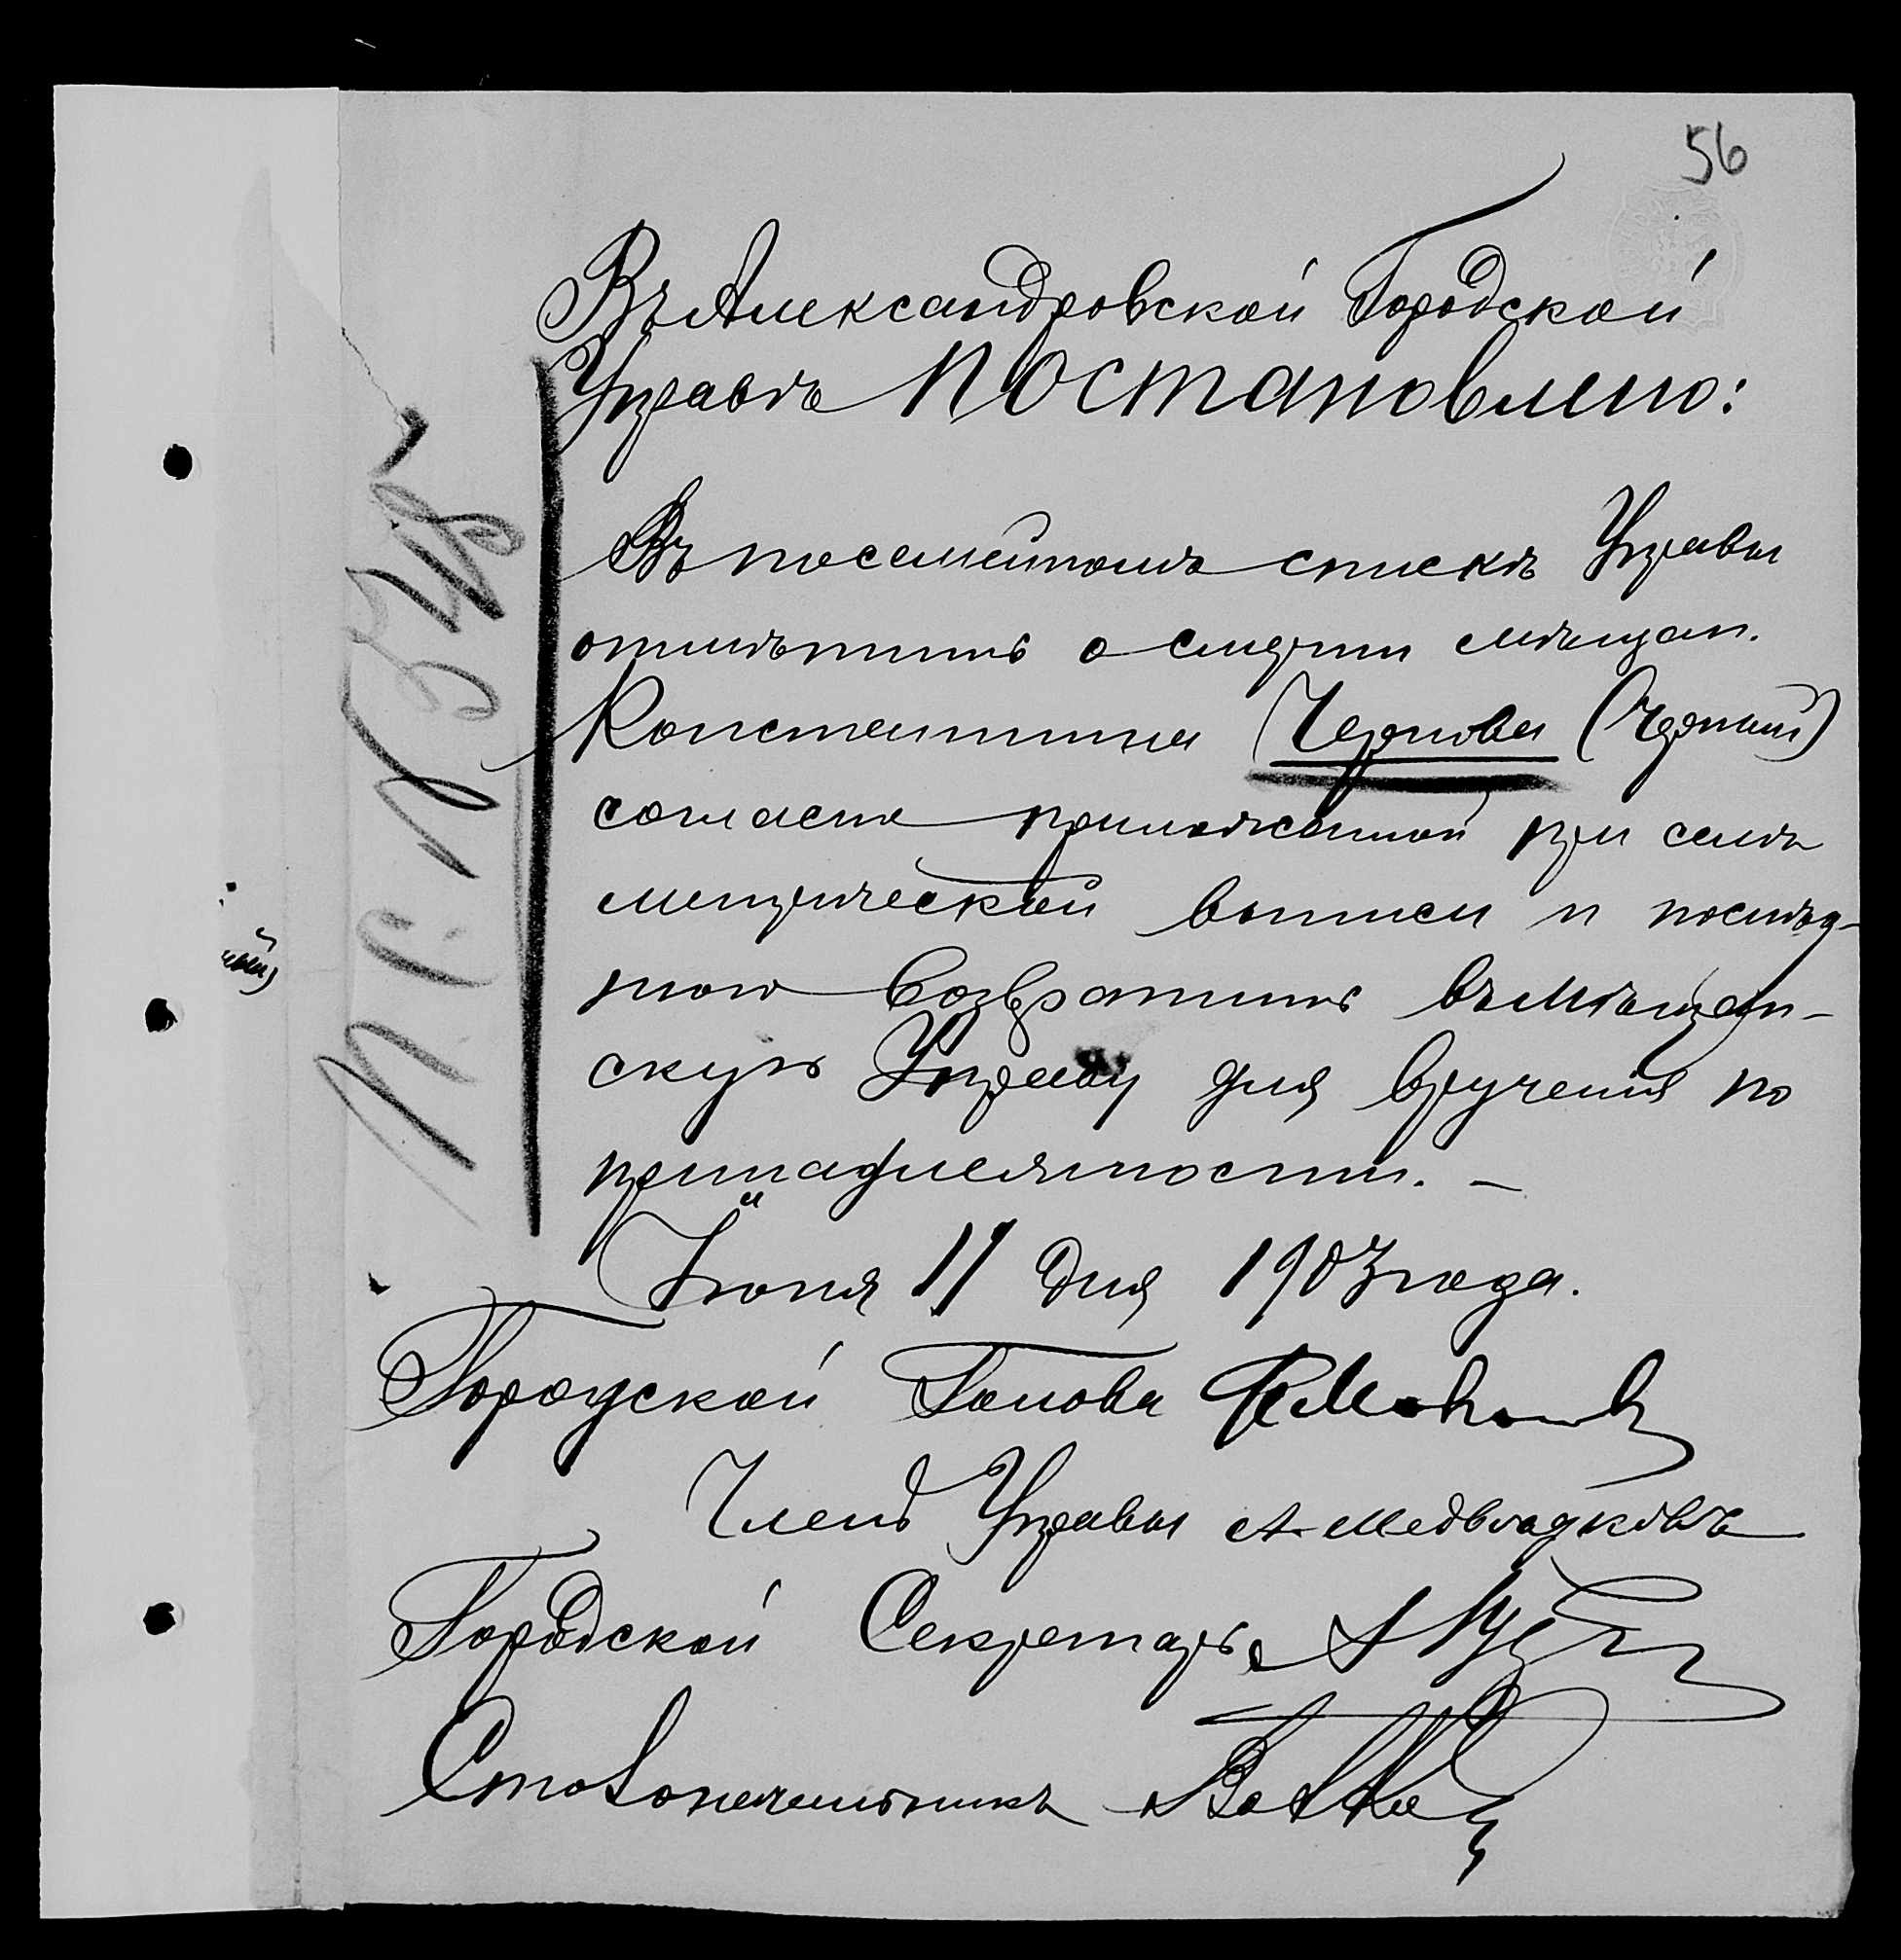 56
Въ Александровской Городской
Управѣ постановлено:
Въ посемейномъ спискѣ Управы
отмѣтить о смерти мѣщан.
Константина Чернова (Черный)
согласно приложенной при семъ
метрической выписи и послѣд-
нюю возвратить въ Мѣщан-
скую Управу для врученія по
принадлежности. –
Іюня 11 дня 1903 года.
Городской Голова
Членъ Управы А. Медвѣдковъ
Городской Секретарь
Столоначальникъ